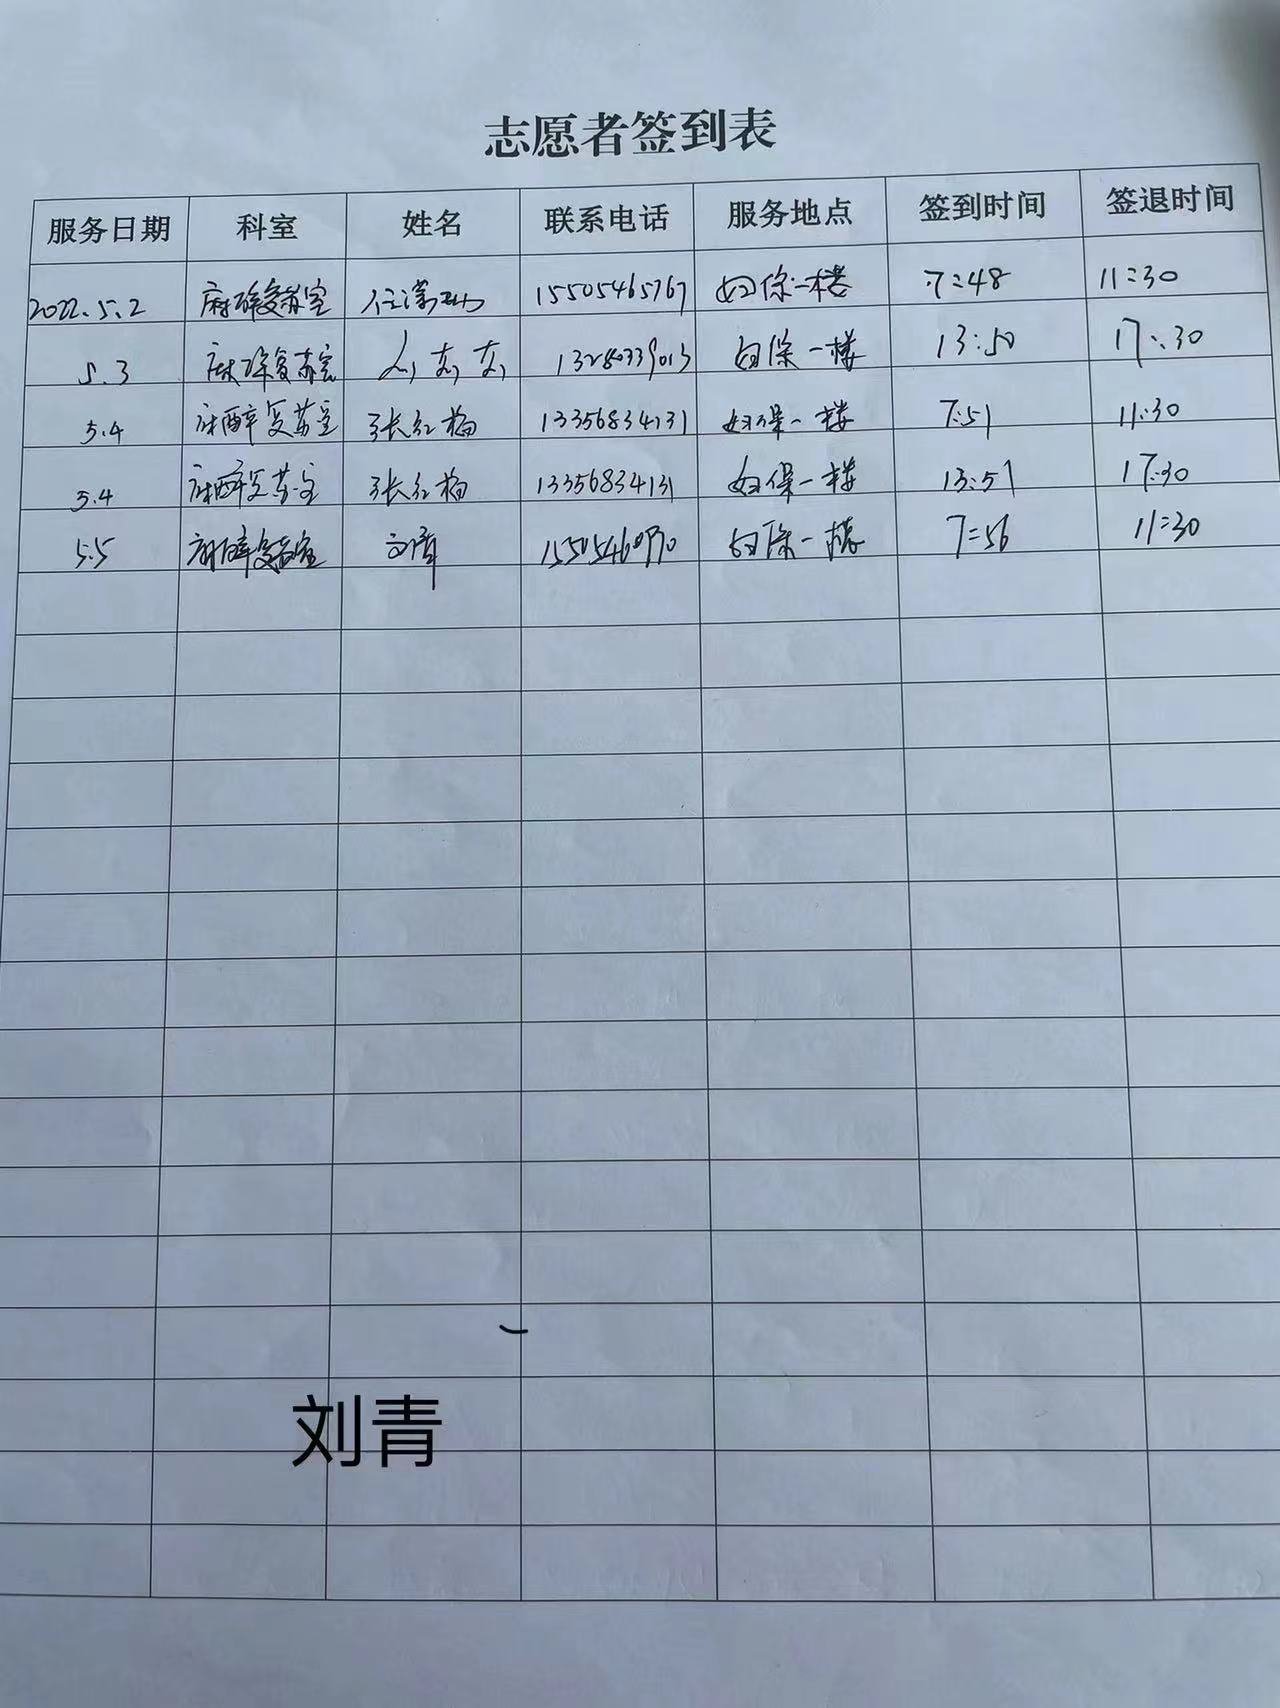 志愿者签到表
服务日期 科室 姓名 联系电话 服务地点 签到时间 签退时间
2022.5.2 麻醉复苏室 15505465767 妇保一楼 7:48 11:30
5.3 麻醉复苏室 13280339013 妇保一楼 13:50 17:30
5.4 麻醉复苏室 张红梅 13356834131 妇保一楼 7:51 11:30
5.4 麻醉复苏室 张红梅 13356834131 妇保一楼 13:51 17:30
5.5 麻醉复苏室 妇保一楼 7:56 11:30
刘青